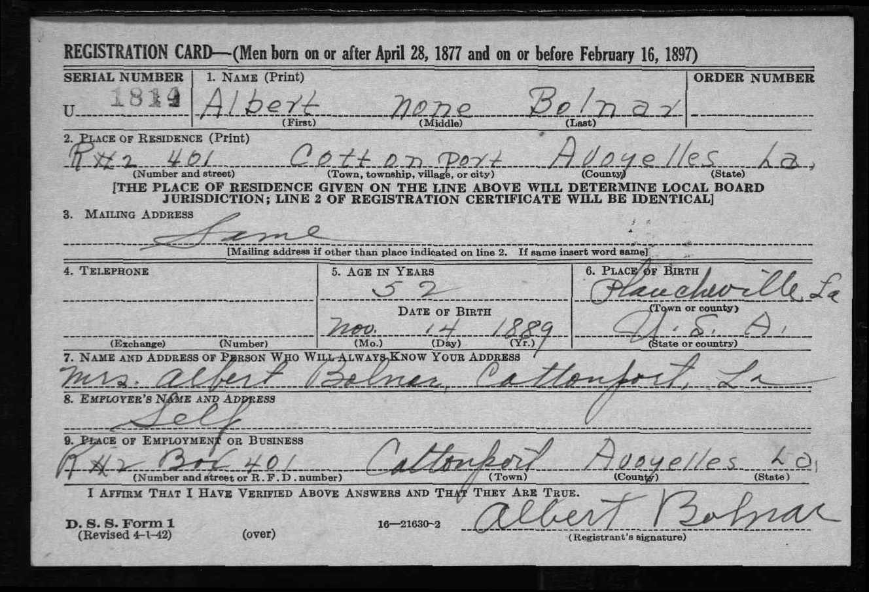 REGISTRATION CARD—(Men born on or after April 28, 1877 and on or before February 16, 1897)
SERIAL NUMBER 1. NAME (Print) ORDER NUMBER
U 1814 Albert none Bolnar
(First) (Middle) (Last)
2. PLACE OF RESIDENCE (Print)
R#2 401 Cottonport Avoyelles La.
(Number and street) (Town, township, village, or city) (County) (State)
[THE PLACE OF RESIDENCE GIVEN ON THE LINE ABOVE WILL DETERMINE LOCAL BOARD
JURISDICTION; LINE 2 OF REGISTRATION CERTIFICATE WILL BE IDENTICAL]
3. MAILING ADDRESS
Same
[Mailing address if other than place indicated on line 2. If same insert word same]
4. TELEPHONE 5. AGE IN YEARS 6. PLACE OF BIRTH
52 Plaucheville, La
DATE OF BIRTH (Town or county)
Nov. 14 1889 U. S. A.
(Exchange) (Number) (Mo.) (Day) (Yr.) (State or country)
7. NAME AND ADDRESS OF PERSON WHO WILL ALWAYS KNOW YOUR ADDRESS
Mrs. Albert Bolnar, Cottonport, La
8. EMPLOYER'S NAME AND ADDRESS
Self
9. PLACE OF EMPLOYMENT OR BUSINESS
R#2 Box 401 Cottonport Avoyelles La.
(Number and street or R. F. D. number) (Town) (County) (State)
I AFFIRM THAT I HAVE VERIFIED ABOVE ANSWERS AND THAT THEY ARE TRUE.
Albert Bolnar
D. S. S. Form 1 16—21630-2
(Revised 4-1-42) (over) (Registrant's signature)